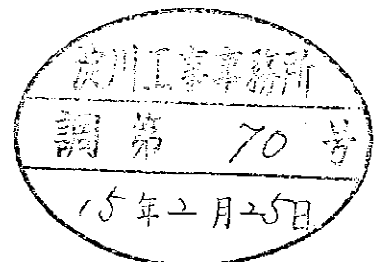 淀川工事事務所
調第 70 号
15年2月25日